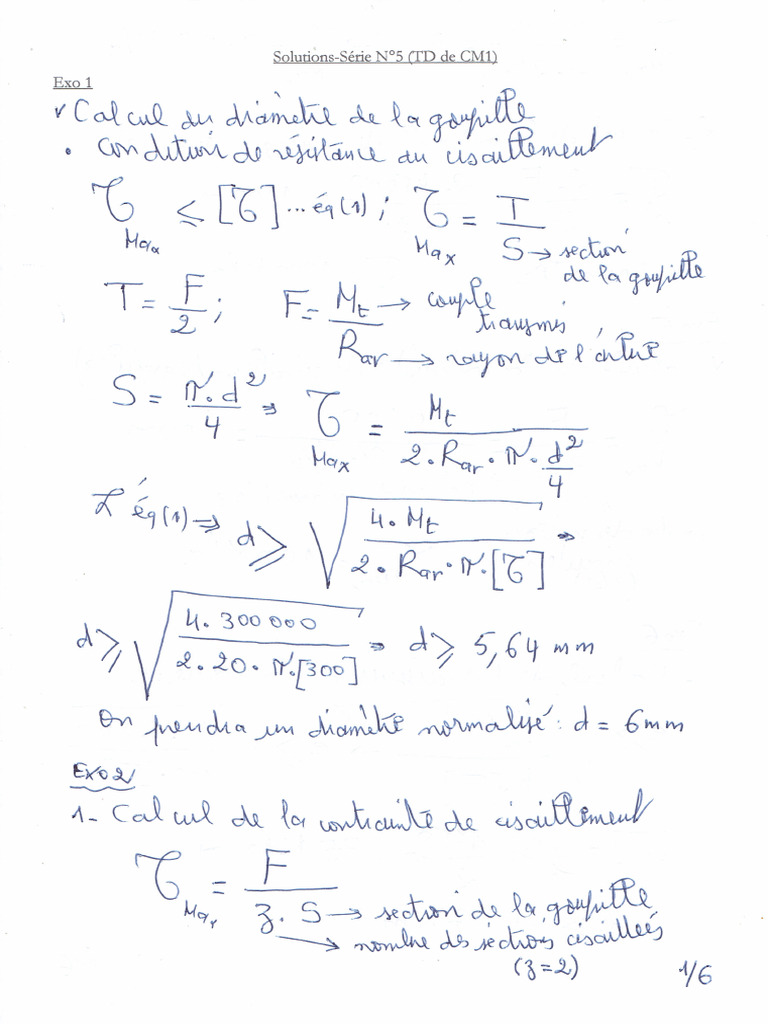 Solutions-Série N°5 (TD de CM1)
Exo 1
✓ Calcul du diamètre de la goupille
• Condition de résistance au cisaillement
τ_Max ≤ [τ] ... éq(1) ; τ_Max = T / S → section de la goupille
T = F / 2 ; F = M_t / R_ar
M_t → couple transmis
R_ar → rayon de l'arbre
S = π.d² / 4 ⇒ τ_Max = M_t / (2.R_ar.π.d²/4)
L'éq(1) ⇒ d ≥ √(4.M_t / (2.R_ar.π.[τ])) ⇒
d ≥ √(4.300000 / (2.20.π.[300])) ⇒ d ≥ 5,64 mm
On prendra un diamètre normalisé : d = 6mm
EXO2
1- Calcul de la contrainte de cisaillement
τ_Max = F / (z.S)
S → section de la goupille
z → nombre des sections cisaillées
(z=2)
1/6